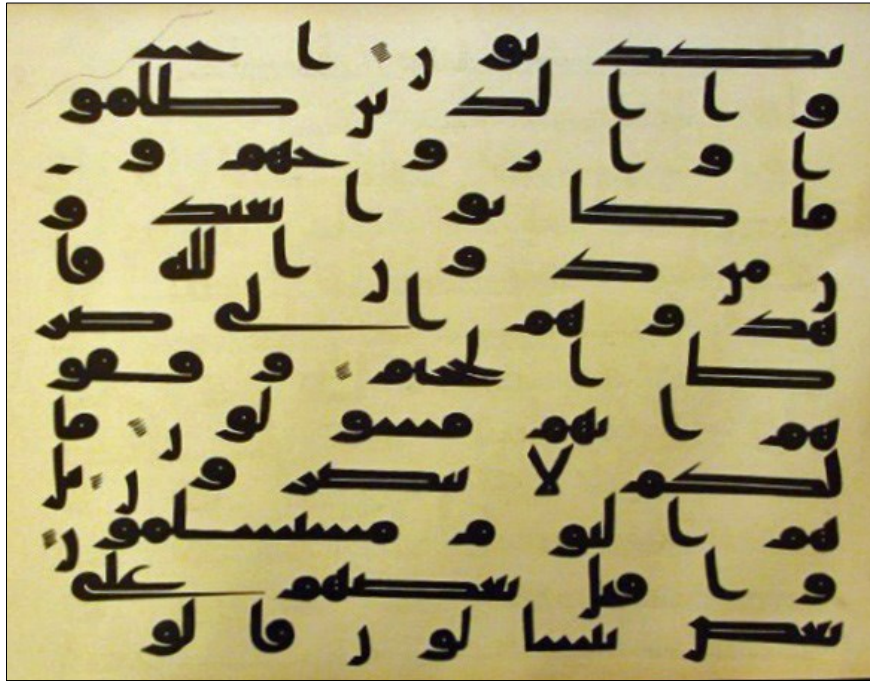 تكذبون احشر
وا الذين ظلمو
ا وازوجهم و
ما كانوا يعبدو
ن من دون الله فا
هدوهم الى صر
ط الجحيم وقفو
هم انهم مسولون ما
لكم لا تنصرون بل
هم اليوم مستسلمون
واقبل بعضهم على
بعض يتسالون قالو